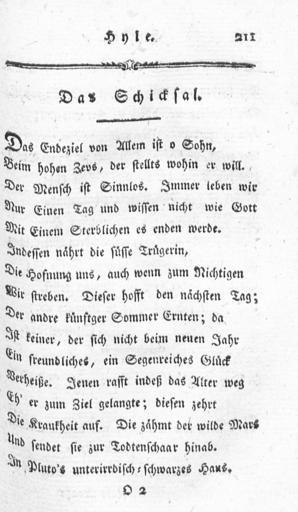 Hyle. 211
Das Schicksal.
Das Endeziel von Allem ist o Sohn,
Beim hohen Zevs, der stellts wohin er will.
Der Mensch ist Sinnlos. Immer leben wir
Nur Einen Tag und wissen nicht wie Gott
Mit Einem Sterblichen es enden werde.
Indessen nährt die süsse Trügerin,
Die Hofnung uns, auch wenn zum Nichtigen
Wir streben. Dieser hofft den nächsten Tag;
Der andre künftger Sommer Ernten; da
Ist keiner, der sich nicht beim neuen Jahr
Ein freundliches, ein Segenreiches Glück
Verheiße. Jenen rafft indeß das Alter weg
Eh' er zum Ziel gelangte; diesen zehrt
Die Krankheit auf. Die zähmt der wilde Mars
Und sendet sie zur Todtenschaar hinab.
In Pluto's unterirrdisch-schwarzes Haus.
O 2